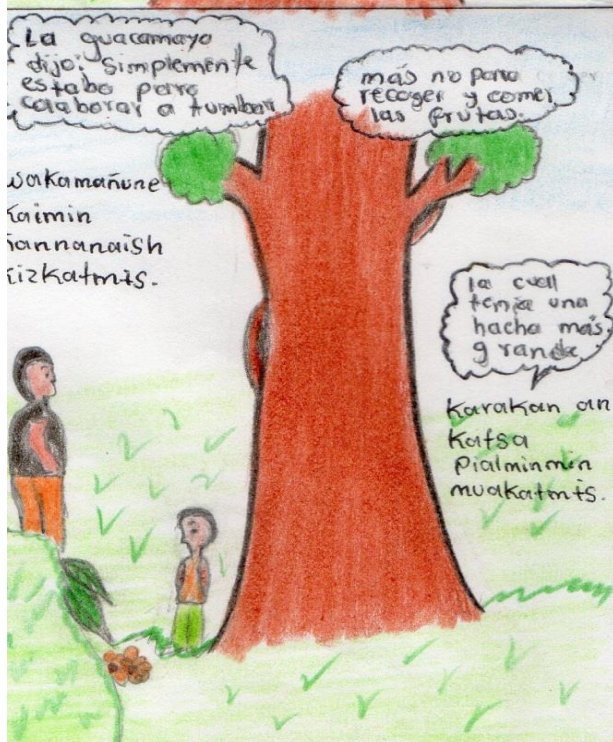 La guacamayo
dijo: Simplemente
estaba para
colaborar a tumbar
más no para
recoger y comer
las frutas.
wakamañune
kaimin
kizkatmts.
la cual
tenia una
hacha más
grande
Karakan an
Katsa
Pialminmin
muakatmts.